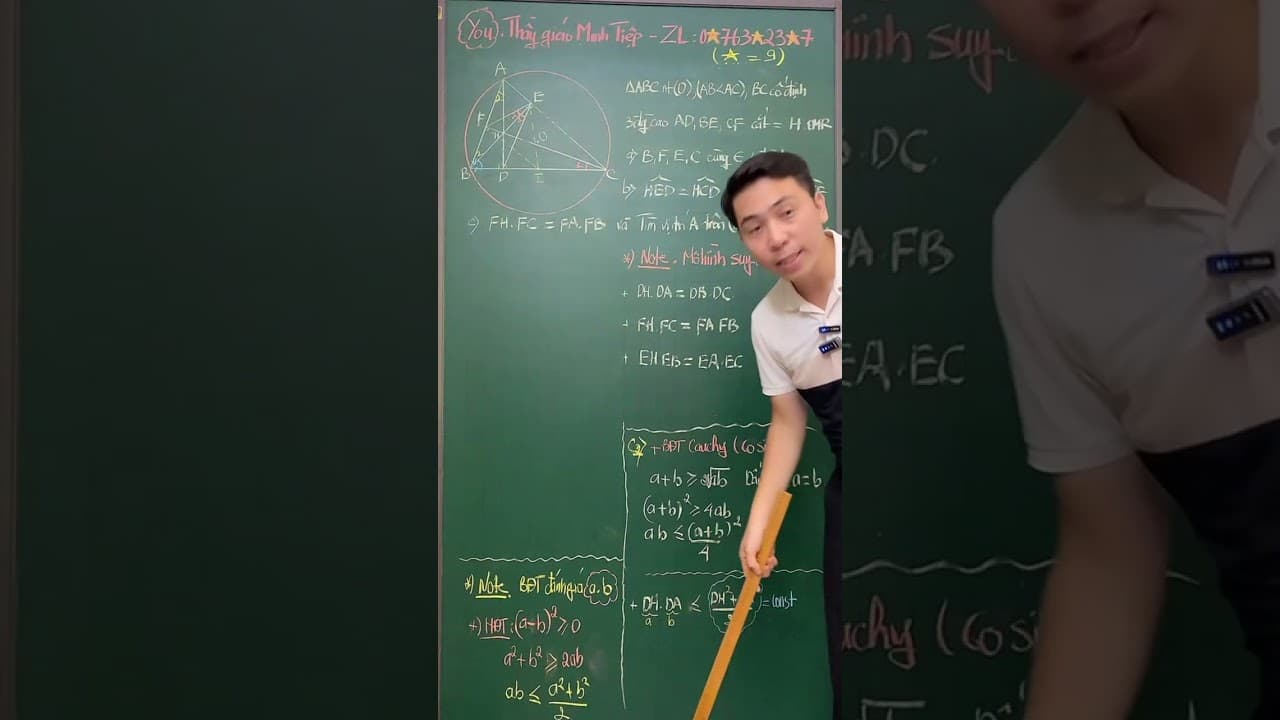 You. Thầy giáo Minh Tiệp - ZL: 0★763★23★7
(★ = 9)
A
E
F
H
O
B
D
I
C
ΔABC nt (O), (AB<AC), BC cố định
3 đg cao AD, BE, CF cắt = H. CMR
a) B, F, E, C cùng ∈
b) HED = HCD
c) FH.FC = FA.FB và Tìm vị trí A trên
*) Note. Mô hình suy
+ DH.DA = DB.DC
+ FH.FC = FA.FB
+ EH.EB = EA.EC
+ BĐT Cauchy (Cosi
a+b ≥ 2√ab Dấu a=b
(a+b)² ≥ 4ab
ab ≤ (a+b)²/4
+ DH.DA ≤ = const
a b
*) Note. BĐT đánh giá a.b
+) HĐT: (a-b)² ≥ 0
a²+b² ≥ 2ab
ab ≤ a²+b²/2
hình suy
DC
FA.FB
EA.EC
auchy (Cosi